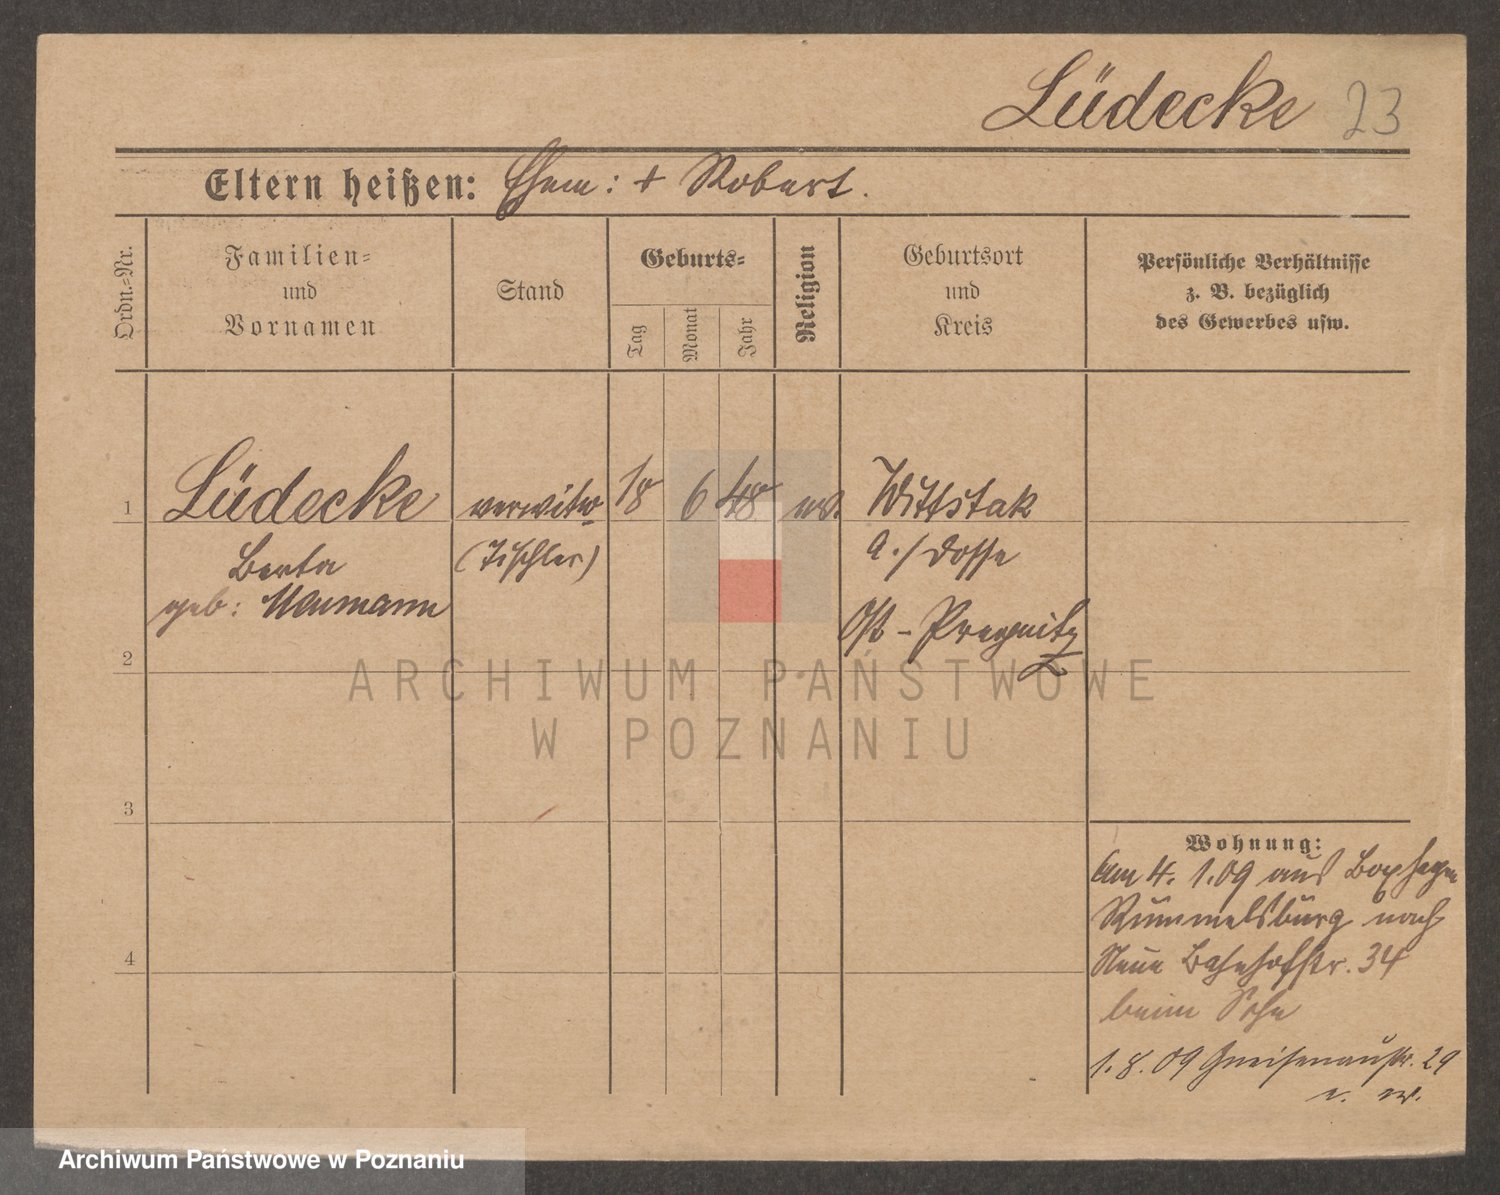 Lüdecke 23
Eltern heißen: Ehem: + Robert.
Ordn.=Nr.
Familien=
und
Vornamen
Stand
Geburts=
Tag
Monat
Jahr
Religion
Geburtsort
und
Kreis
Persönliche Verhältnisse
z. B. bezüglich
des Gewerbes usw.
1 Lüdecke verwitw 18 6 48 ev. Wittstak
Berta (Tischler) a./Dosse
geb: Neumann Ost-Pregnitz
2
3
Wohnung:
Am 4. 1.09 aus Boxhagen
Rummelsburg nach
4 Neue Bahnhofstr. 34
beim Sohn
1.8.09 Gneisenaustr. 29
e. W.
ARCHIWUM PAŃSTWOWE
W POZNANIU
Archiwum Państwowe w Poznaniu